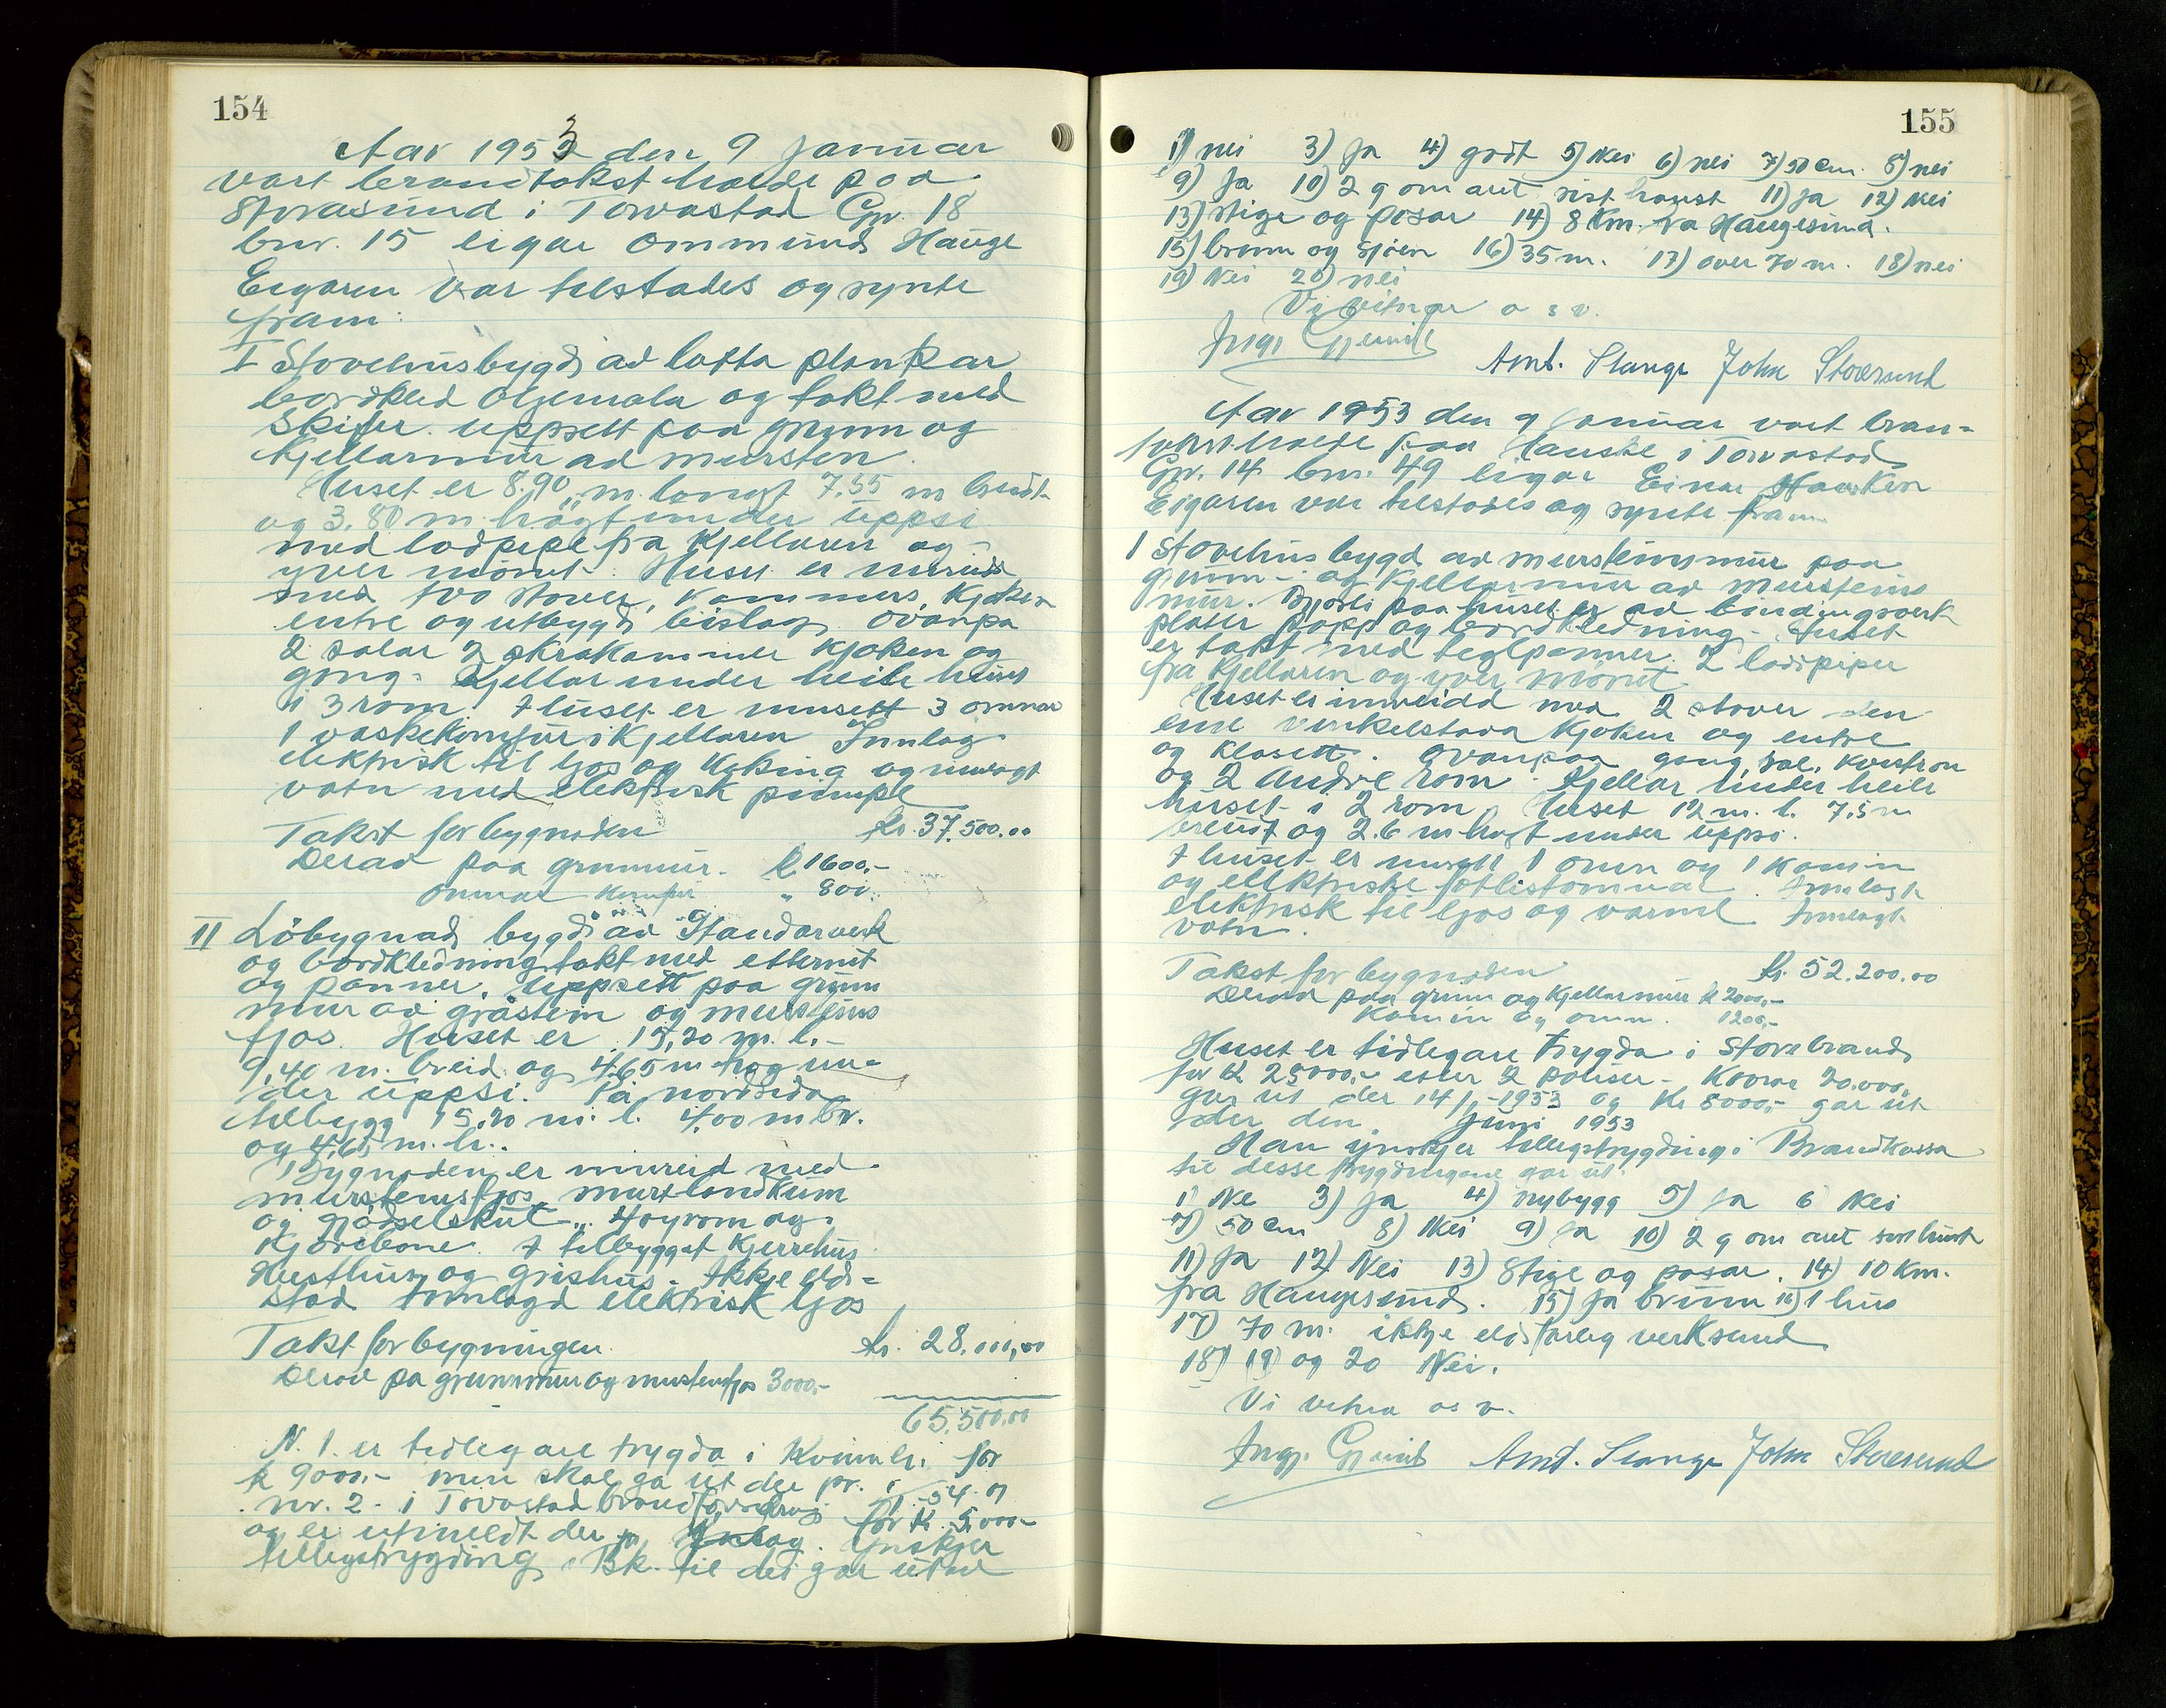 154
Aar 1953 den 9 Januar
vart brandtakst halde paa
Storasund i Torvastad Gnr. 18
bnr. 15 eigar Ommund Hauge
Eigaren var tilstades og synte
fram:
I Stovehus bygd av lafta plankar
bordkled oljemala og takt med
Skifer. uppsett paa grunn og
Kjellarmur av mursten.
Huset er 8.90 m. langt 7.55 m breidt
og 3.80 m. högt under uppsi
med lodpipe fra Kjellaren og
yver mönet. Huset er innreidd
med tvo stover, Kammers, Kjøken
entre og utbygd bislag. Ovanpa
2 salar 2 skrakammer Kjøken og
gang. Kjellar under heile huset
i 3 rom. I huset er innsett 3 omnar
1 vaskekomfur i Kjellaren Innlag
elektrisk til ljos og koking og innlagt
vatn med elektrisk pumpe
Takst for bygnaden Kr. 37.500.00
Derav paa grunnmur. K 1600,-
Omnar Komfur " 800.
II Löbygnad bygd av Standarverk
og bordkledning takt med etternit
og panner. Uppsett paa grunn
mur av gråstein og murstens
fjos. Huset er 15,20 m. l.
9,40 m. breid og 4.65 m hög un-
der uppsi. På nordsida
tilbygg 15.20 m. l. 4,00 m br.
og 4,65 m. h..
Bygnaden er innreid med
murstensfjos murt landkum
og gjødselskut. 4 oyrom og
Kjörebone. I tilbygget Kjerrehus
Hesthus og grishus. Ikkje eld-
stad Innlagd elektrisk ljos
Takst for bygningen. Kr. 28.000,00
Derav pa grunnmur og murstensfjos 3000.-
65.500.00
N. 1. er tidlegare trygda i Kvinnh. for
K 9000.- men skal ga ut der pr. 1/1-54. og
nr. 2. i Torvastad brandforsikring for K. 5.000-
og er utmeldt der pr Ynskjer
tilleggstrygding i Bk. til dei gar ut

155
1) nei 3) Ja 4) godt 5) Nei 6) nei 7) 50 cm. 8) nei
9) Ja 10) 2 g om aret sist haust 11) Ja 12) Nei
13) Stige og posar 14) 8 Km. fra Haugesund.
15) brunn og sjøen 16) 35 m. 17) over 70 m. 18) nei
19) Nei 20) nei
Vi vitnar o s v.
Amt. Stange John Storesund
Aar 1953 den 9 Januar vart bran-
takst halde paa Hauske i Torvastad
Gnr. 14 bnr. 49 eigar Einar Hausken
Eigaren var tilstades og synte fram
1 Stovehus bygd av murstensmur paa
grunn- og Kjellarmur av murstens
mur. paa huset er av bindingsverk
plater papp og bordkledning. Huset
er takt med teglpanner. 2 lodpiper
fra Kjellaren og yver mönet
Huset er innreidd med 2 stover den
eine vinkelstova Kjøken og entre
og klosett. Ovanpaa gang, sal, kvistrom
og 2 andre rom. Kjellar under heile
huset i 2 rom. Huset 12 m. l. 7.5 m
breidt og 2.6 m högt under uppsi.
I huset er innsett 1 omn og 1 Kamin
og elektriske fotlistomnar. Innlagt
elektrisk til ljos og varme Innlagt
vatn.
Takst for bygnaden Kr. 52.200.00
Derav paa grunn og Kjellarmur K 2000,-
Kamin og omn. 1200,-
Huset er tidlegare trygda i Storebrand
for K 28000.- etter 2 poliser. Kvorav 20.000,
gar ut der 14/1-1953 og Kr 8000,- gar ut
der den Juni 1953
Han ynskjer tilleggstrygding i Brandkassa
til desse trygdingane gar ut.
1) Ne 3) Ja 4) nybygg 5) Ja 6 Nei
7) 50 cm 8) Nei 9) Ja 10) 2 g om aret
11) Ja 12) Nei 13) Stige og posar. 14) 10 Km.
fra Haugesund. 15) Ja brunn 16) 1 hus
17) 70 m. ikkje eldsfarleg verksemd
18) 19) og 20 Nei.
Vi vitna os v.
Amt. Stange John Storesund